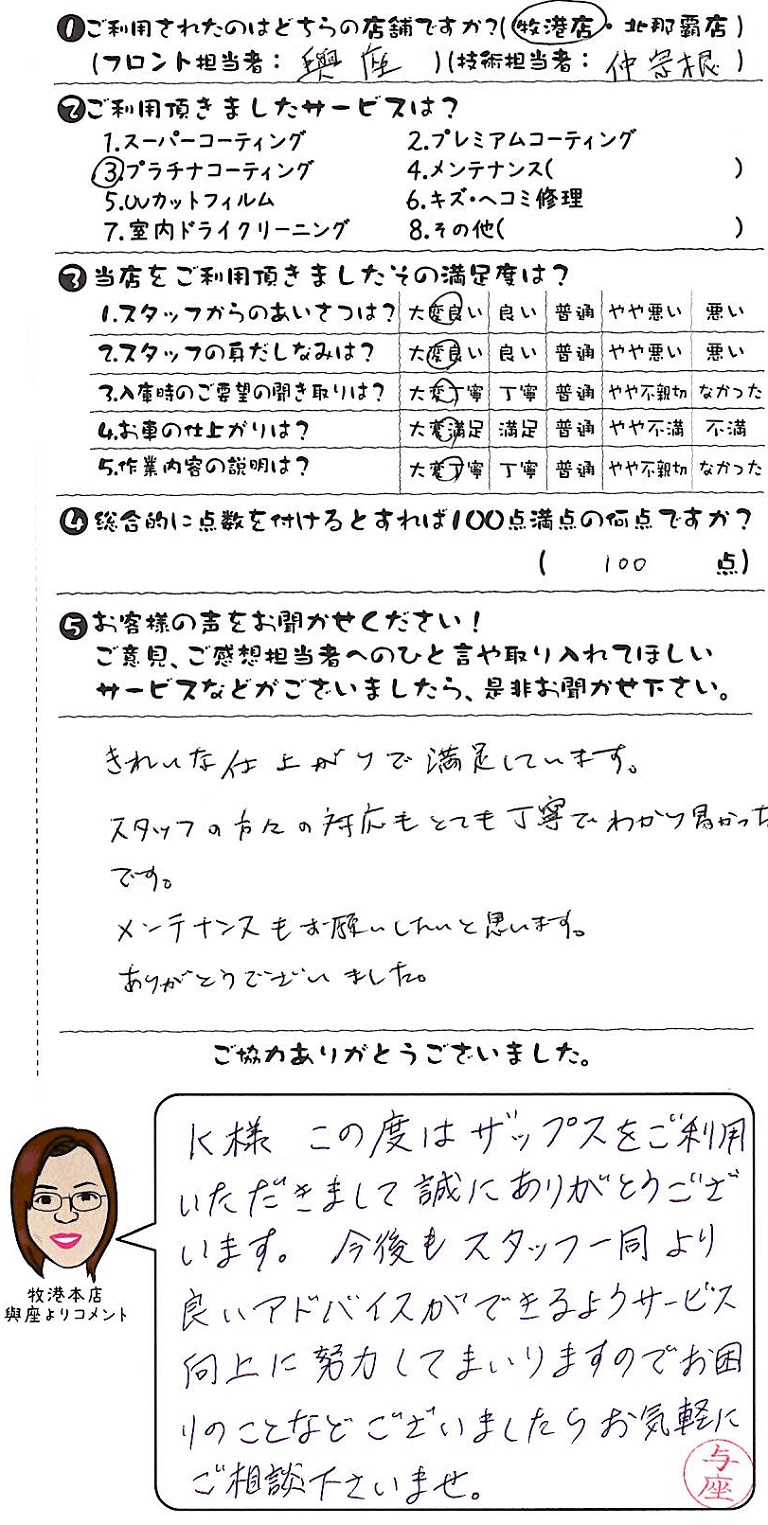 ❶ご利用されたのはどちらの店舗ですか?(牧港店・北那覇店)
(フロント担当者: 與座 )(技術担当者: 仲宗根 )
❷ご利用頂きましたサービスは?
1.スーパーコーティング 2.プレミアムコーティング
③.プラチナコーティング 4.メンテナンス( )
5.UVカットフィルム 6.キズ・ヘコミ修理
7.室内ドライクリーニング 8.その他( )
❸当店をご利用頂きましたその満足度は?
1.スタッフからのあいさつは? 大変良い 良い 普通 やや悪い 悪い
2.スタッフの身だしなみは? 大変良い 良い 普通 やや悪い 悪い
3.入庫時のご要望の聞き取りは? 大変丁寧 丁寧 普通 やや不親切 なかった
4.お車の仕上がりは? 大変満足 満足 普通 やや不満 不満
5.作業内容の説明は? 大変丁寧 丁寧 普通 やや不親切 なかった
❹総合的に点数を付けるとすれば100点満点の何点ですか?
( 100 点)
❺お客様の声をお聞かせください!
ご意見、ご感想担当者へのひと言や取り入れてほしい
サービスなどがございましたら、是非お聞かせ下さい。
きれいな仕上がりで満足しています。
スタッフの方々の対応もとても丁寧でわかり易かった
です。
メンテナンスもお願いしたいと思います。
ありがとうございました。
ご協力ありがとうございました。
K様 この度はザップスをご利用
いただきまして誠にありがとうござ
います。 今後もスタッフ一同より
良いアドバイスができるようサービス
向上に努力してまいりますのでお困
りのことなどございましたらお気軽に
ご相談下さいませ。
牧港本店
與座よりコメント
与座